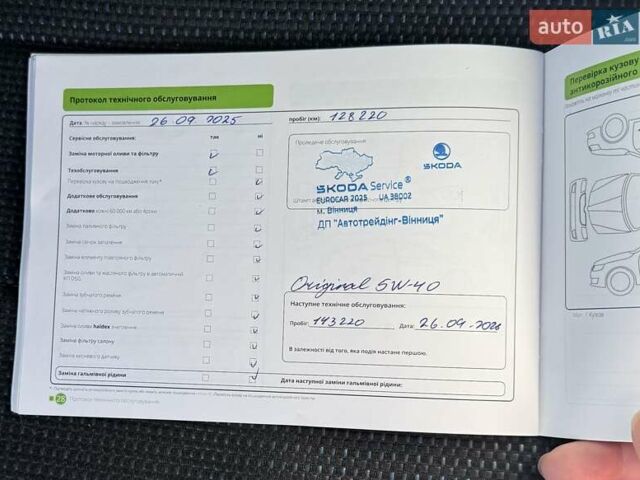 auto RIA.com
Протокол технічного обслуговування
Дата 26.09.2025
пробіг (км): 128220
Сервісне обслуговування: так ні
Проведене обслуговування
Заміна моторної оливи та фільтру
Техобслуговування
Перевірка кузову на пошкодження лаку*
Додаткове обслуговування
Додаткове кожні 60.000 км або 4 роки
Заміна паливного фільтру
Заміна свічок запалення
Заміна елементу повітряного фільтру
Заміна оливи та масляного фільтру в автоматичній КП DSG
Заміна зубчатого ременя
Заміна натяжного ролику зубчатого ременя
Заміна оливи haldex
Заміна фільтру салону
Заміна гальмівної рідини
SKODA
SKODA Service®
EUROCAR 2025 UA 38002
м. Вінниця
ДП "Автотрейдінг-Вінниця"
Original 5W-40
Наступне технічне обслуговування:
Пробіг: 143220 Дата: 26.09.2026
В залежності від того, яка подія настане першою.
Дата наступної заміни гальмівної рідини:
28 Протокол технічного обслуговування
Перевірка кузову
антикорозійного